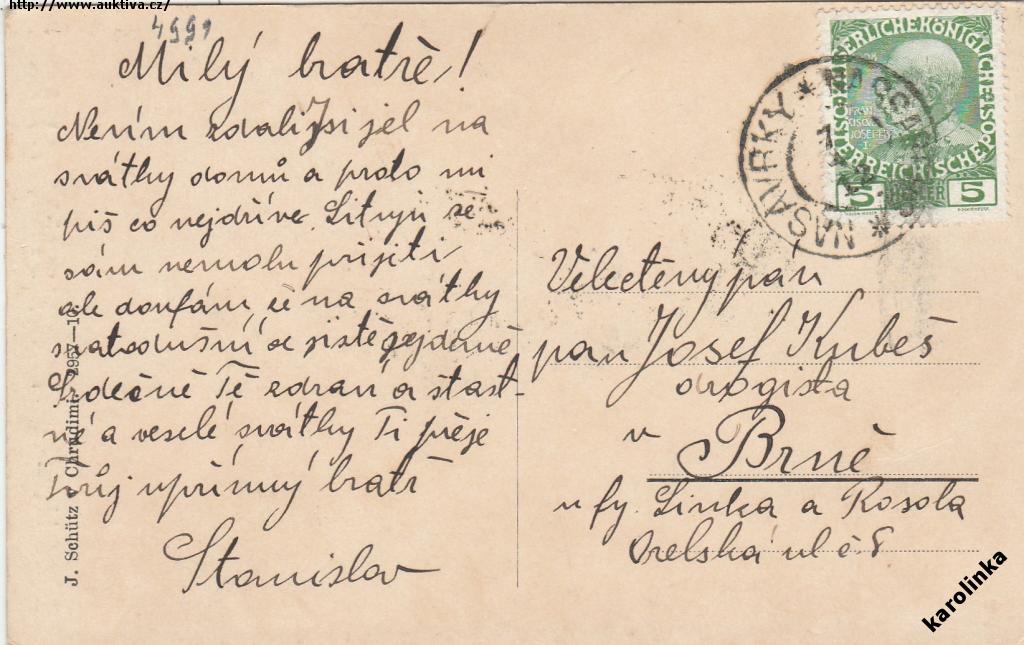 http://www.auktiva.cz/
4991
Milý bratře!
Nevím zdaliž jsi jel na
svátky domů a proto mi
piš co nejdříve. Lituji že
sám nemohu přijeti
ale doufám že na svátky
svatodušní se jistě pojedeme
Srdečně Tě zdraví a šťast-
né a veselé svátky Ti přeje
Tvůj upřímný bratr
Stanislav
J. Schütz Chrudimi 2957
NASAVRKY * NASSABERG *
KAISERLICHE KÖNIGLICHE
ÖSTERREICHISCHE POST
5 HELLER 5
Velectěný pán
pan Josef Kubeš
drogista
v Brně
u fy. Linka a Rosola
Orelská ul č. 8
karolinka